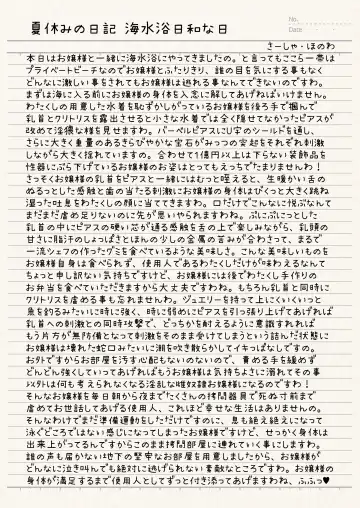 No.
Date
夏休みの日記 海水浴日和な日
きーしゃ・ほのわ
本日はお嬢様と一緒に海水浴にやってきましたの。と言ってもここら一帯は
プライベートビーチなのでお嬢様とふたりきり、誰の目を気にする事もなく
どんなに激しい事をされてもお嬢様は逃れる事なんてできないのですわ。
まずは海に入る前にお嬢様の身体を入念に解してあげねばいけません。
わたくしの用意した水着を恥ずかしがっているお嬢様を後ろ手で掴んで
乳首とクリトリスを露出させると小さな水着では全く隠せてなかったピアスが
改めて淫猥な様を見せますわ。バーベルピアスにU字のシールドを通し、
さらに大きく重量のあるきらびやかな宝石がみっつの突起をそれぞれ刺激
しながら大きく揺れていますの。合わせて1億円以上は下らない装飾品を
性器にぶら下げているお嬢様のお姿はとってもえっちでたまりませんわ!
さっそくお嬢様の乳首をピアスと一緒にはむっと咥えると、生暖かい舌の
ぬるっとした感触と歯の当たる刺激にお嬢様の身体はびくっと大きく跳ね
湿った吐息をわたくしの顔に当ててきますわ。口だけでこんなに悦ぶなんて
まだまだ虐め足りないのに先が思いやられますわね。ぷにぷにっとした
乳首の中にピアスの硬い芯が通る感触を舌の上で楽しみながら、乳頭の
甘さに脂汗のしょっぱさとほんの少しの金属の苦みが合わさって、まるで
一流シェフの作ったグミを食べているような美味しさ。こんな美味しいものを
お嬢様自身は食べられず、使用人であるわたくしだけが味わえるなんて
ちょっと申し訳ない気持ちですけど、お嬢様には後でわたくし手作りの
お弁当を食べていただきますから大丈夫ですわね。もちろん乳首と同時に
クリトリスを虐める事も忘れませんわ。ジュエリーを持って上にくいくいっと
魚を釣るみたいに時に強く、時に弱めにピアスを引っ張り上げてあげれば
乳首への刺激との同時攻撃で、どっちか耐えるように意識すればれば
もう片方が無防備となって刺激をそのまま受けてしまうという詰んだ状態に
お嬢様は壊れた蛇口みたいに潮を吹き散らかしてイキっぱなしですの。
お外ですからお部屋を汚す心配もないのなので、責める手を緩めず
どんどん強くしていってあげればもうお嬢様は気持ちよさに溺れてその事
以外は何も考えられなくなる淫乱な雌奴隷お嬢様になるのですわ!
そんなお嬢様を毎日朝から夜までたくさんの拷問器具で死ぬ寸前まで
虐めてお世話してあげる使用人、これほど幸せな生活はありませんの。
そんなわけでまだ準備運動をしただけですのに、息も絶え絶えになって
泳ぐどころではない感じになってしまったお嬢様ですけど、せっかく身体は
出来上がってるんですからこのまま拷問部屋に連れていく事にしますわ。
誰の声も届かない地下の堅牢なお部屋を用意しましたから、お嬢様が
どんなに泣き叫んでも絶対に逃げられない素敵なところですわ。お嬢様の
身体が満足するまで使用人としてずっと付き添ってあげますわね、ふふっ♥